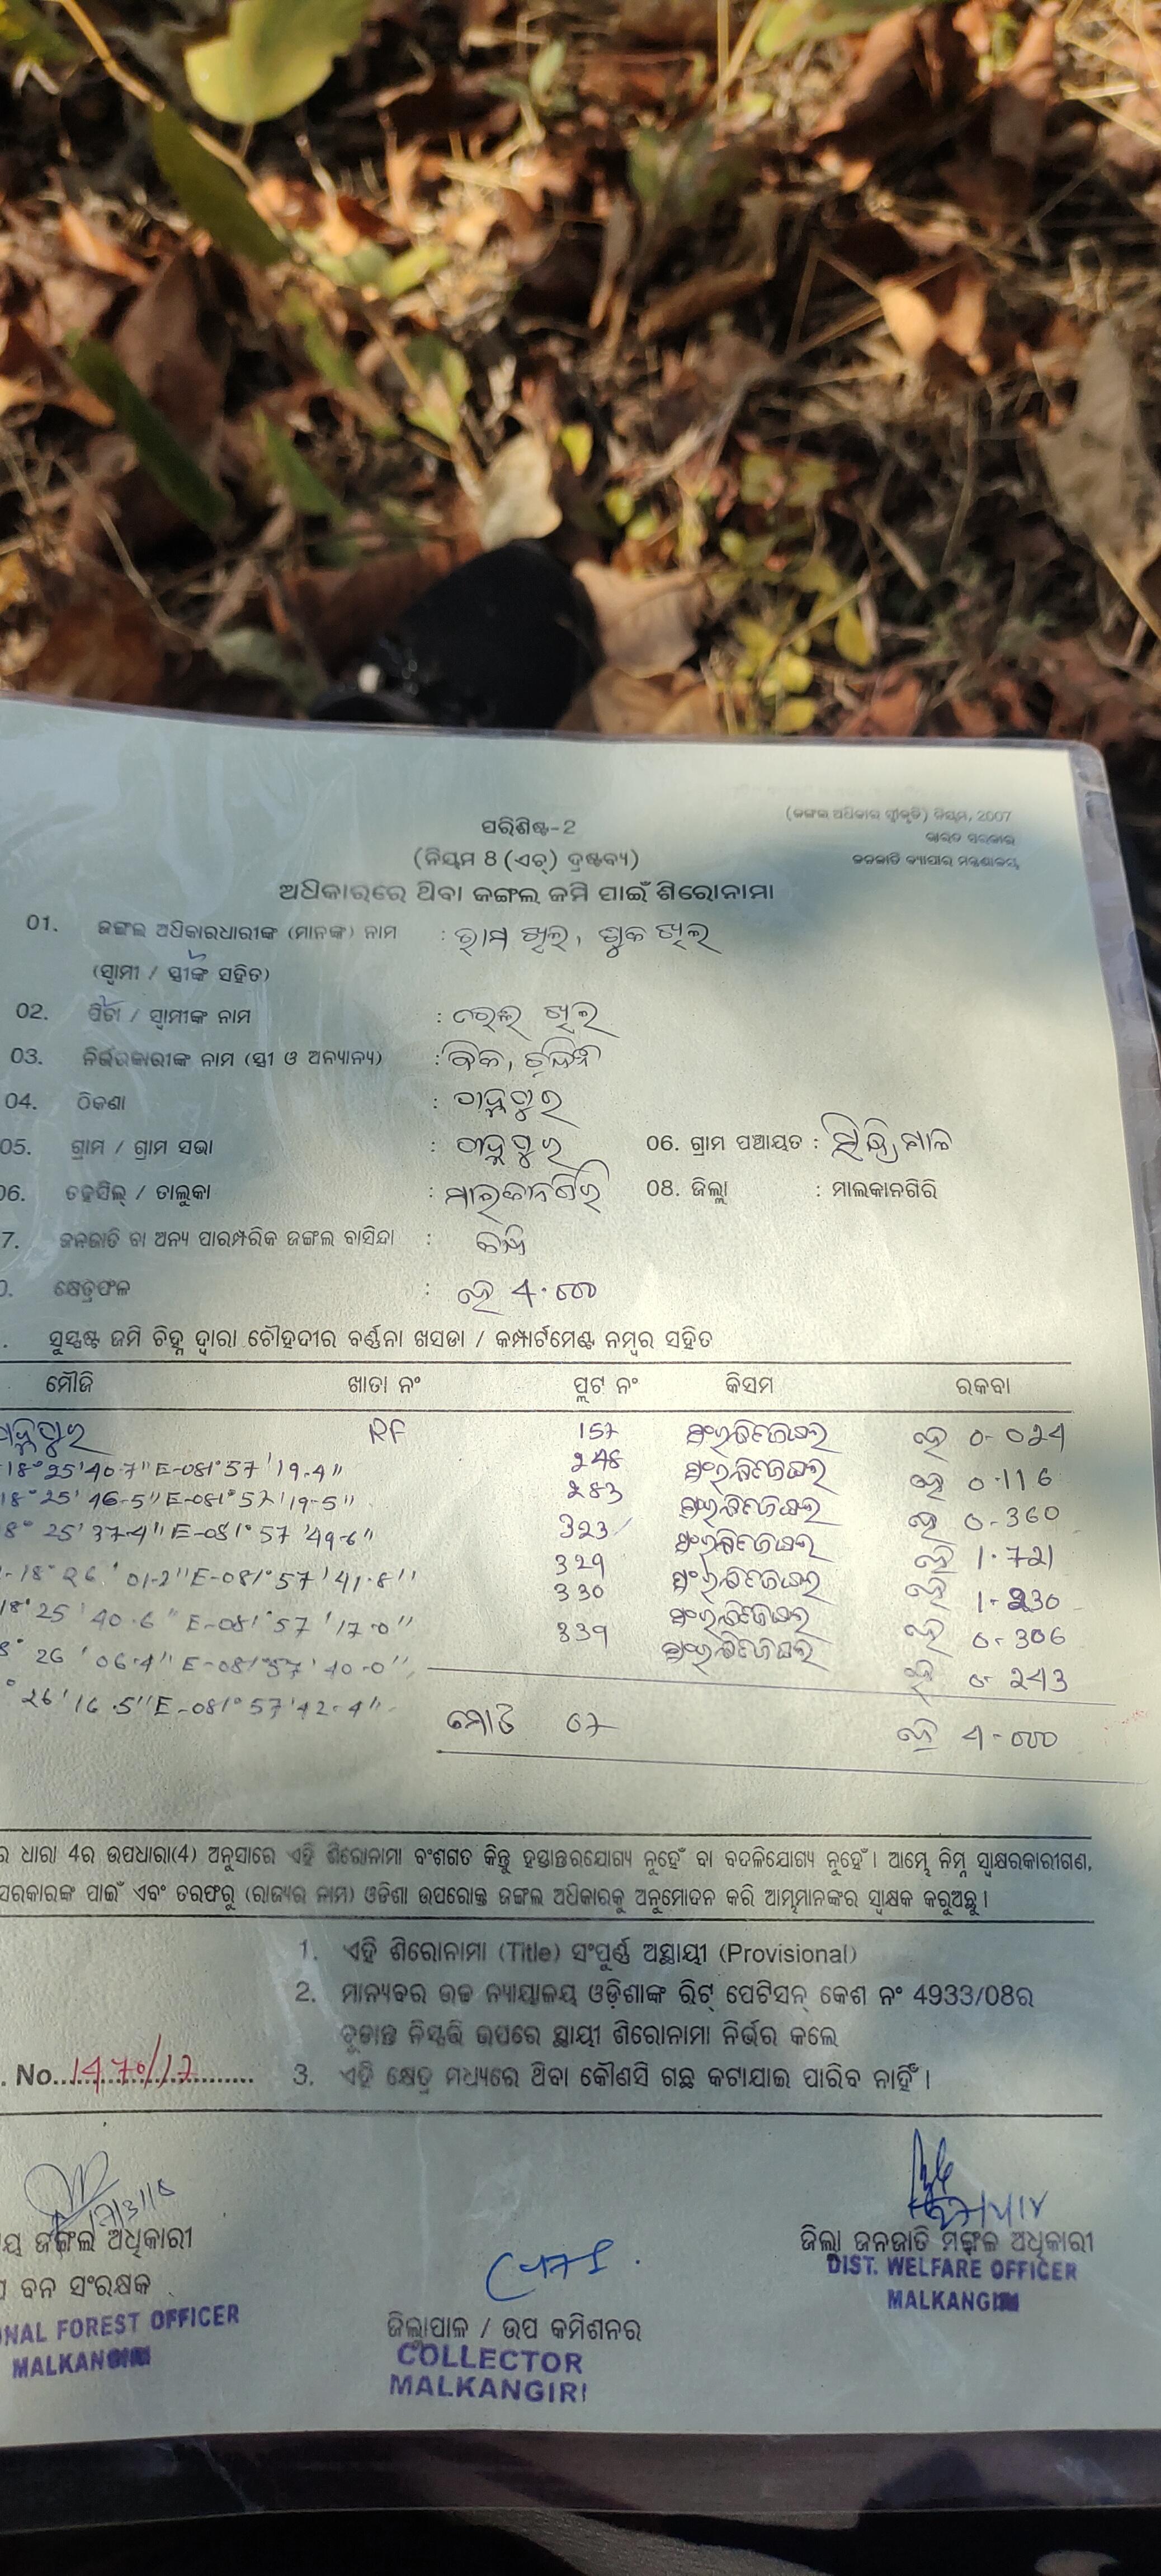 (ଜଙ୍ଗଲ ଅଧିକାର ସ୍ୱୀକୃତି) ନିୟମ, 2007
ଭାରତ ସରକାର
ଜନଜାତି ବ୍ୟାପାର ମନ୍ତ୍ରଣାଳୟ
ପରିଶିଷ୍ଟ-2
(ନିୟମ 8 (ଏଚ୍) ଦ୍ରଷ୍ଟବ୍ୟ)
ଅଧିକାରରେ ଥିବା ଜଙ୍ଗଲ ଜମି ପାଇଁ ଶିରୋନାମା
01. ଜଙ୍ଗଲ ଅଧିକାରଧାରୀଙ୍କ (ମାନଙ୍କ) ନାମ : ରାମ ଖିଲ, ଶୁକ ଖିଲ
(ସ୍ୱାମୀ / ସ୍ତ୍ରୀଙ୍କ ସହିତ)
02. ପିତା / ସ୍ୱାମୀଙ୍କ ନାମ : ଖିଲ
03. ନିର୍ଭରକାରୀଙ୍କ ନାମ (ସ୍ତ୍ରୀ ଓ ଅନ୍ୟାନ୍ୟ) :
04. ଠିକଣା :
05. ଗ୍ରାମ / ଗ୍ରାମ ସଭା : 06. ଗ୍ରାମ ପଞ୍ଚାୟତ :
06. ତହସିଲ୍ / ତାଲୁକା : ମାଲକାନଗିରି 08. ଜିଲ୍ଲା : ମାଲକାନଗିରି
7. ଜନଜାତି ବା ଅନ୍ୟ ପାରମ୍ପରିକ ଜଙ୍ଗଲ ବାସିନ୍ଦା :
0. କ୍ଷେତ୍ରଫଳ : ହେ 4.୦୦୦
. ସୁସ୍ପଷ୍ଟ ଜମି ଚିହ୍ନ ଦ୍ୱାରା ଚୌହଦୀର ବର୍ଣ୍ଣନା ଖସଡା / କମ୍ପାର୍ଟମେଣ୍ଟ ନମ୍ବର ସହିତ
ମୌଜି ଖାତା ନଂ ପ୍ଲଟ ନଂ କିସମ ରକବା
RF 157 ହେ 0-024
18° 25' 40.7" E-081° 57' 19-4" 248 ହେ 0.116
18° 25' 46-5" E-081° 57' 19-5" 283 ହେ 0-360
8° 25' 37-4" E-081° 57' 49-6" 323 ହେ 1.721
-18° 26' 01-2" E-081° 57' 41.8" 329 ହେ 1-230
18° 25' 40.6" E-081° 57' 17.0" 330 ହେ 0-306
8° 26' 06.4" E-081° 57' 40-0" 339 ହେ 0-243
° 26' 16.5" E-081° 57' 42-4"
ମୋଟ 07 ହେ 4-୦୦୦
ର ଧାରା 4ର ଉପଧାରା(4) ଅନୁସାରେ ଏହି ଶିରୋନାମା ବଂଶଗତ କିନ୍ତୁ ହସ୍ତାନ୍ତରଯୋଗ୍ୟ ନୁହେଁ ବା ବଦଳିଯୋଗ୍ୟ ନୁହେଁ। ଆମ୍ଭେ ନିମ୍ନ ସ୍ୱାକ୍ଷରକାରୀଗଣ,
ସରକାରଙ୍କ ପାଇଁ ଏବଂ ତରଫରୁ (ରାଜ୍ୟର ନାମ) ଓଡିଶା ଉପରୋକ୍ତ ଜଙ୍ଗଲ ଅଧିକାରକୁ ଅନୁମୋଦନ କରି ଆମ୍ଭମାନଙ୍କର ସ୍ୱାକ୍ଷକ କରୁଅଛୁ।
1. ଏହି ଶିରୋନାମା (Title) ସଂପୂର୍ଣ୍ଣ ଅସ୍ଥାୟୀ (Provisional)
2. ମାନ୍ୟବର ଉଚ୍ଚ ନ୍ୟାୟାଳୟ ଓଡ଼ିଶାଙ୍କ ରିଟ୍ ପେଟିସନ୍ କେଶ ନଂ 4933/08ର
ଚୂଡାନ୍ତ ନିସ୍ପତ୍ତି ଉପରେ ସ୍ଥାୟୀ ଶିରୋନାମା ନିର୍ଭର କଲେ
. No. 1470/17 3. ଏହି କ୍ଷେତ୍ର ମଧ୍ୟରେ ଥିବା କୌଣସି ଗଛ କଟାଯାଇ ପାରିବ ନାହିଁ।
ୟ ଜଙ୍ଗଲ ଅଧିକାରୀ
ବନ ସଂରକ୍ଷକ
ONAL FOREST OFFICER
MALKANGIRI
ଜିଲ୍ଲାପାଳ / ଉପ କମିଶନର
COLLECTOR
MALKANGIRI
ଜିଲ୍ଲା ଜନଜାତି ମଙ୍ଗଳ ଅଧିକାରୀ
DIST. WELFARE OFFICER
MALKANGIRI